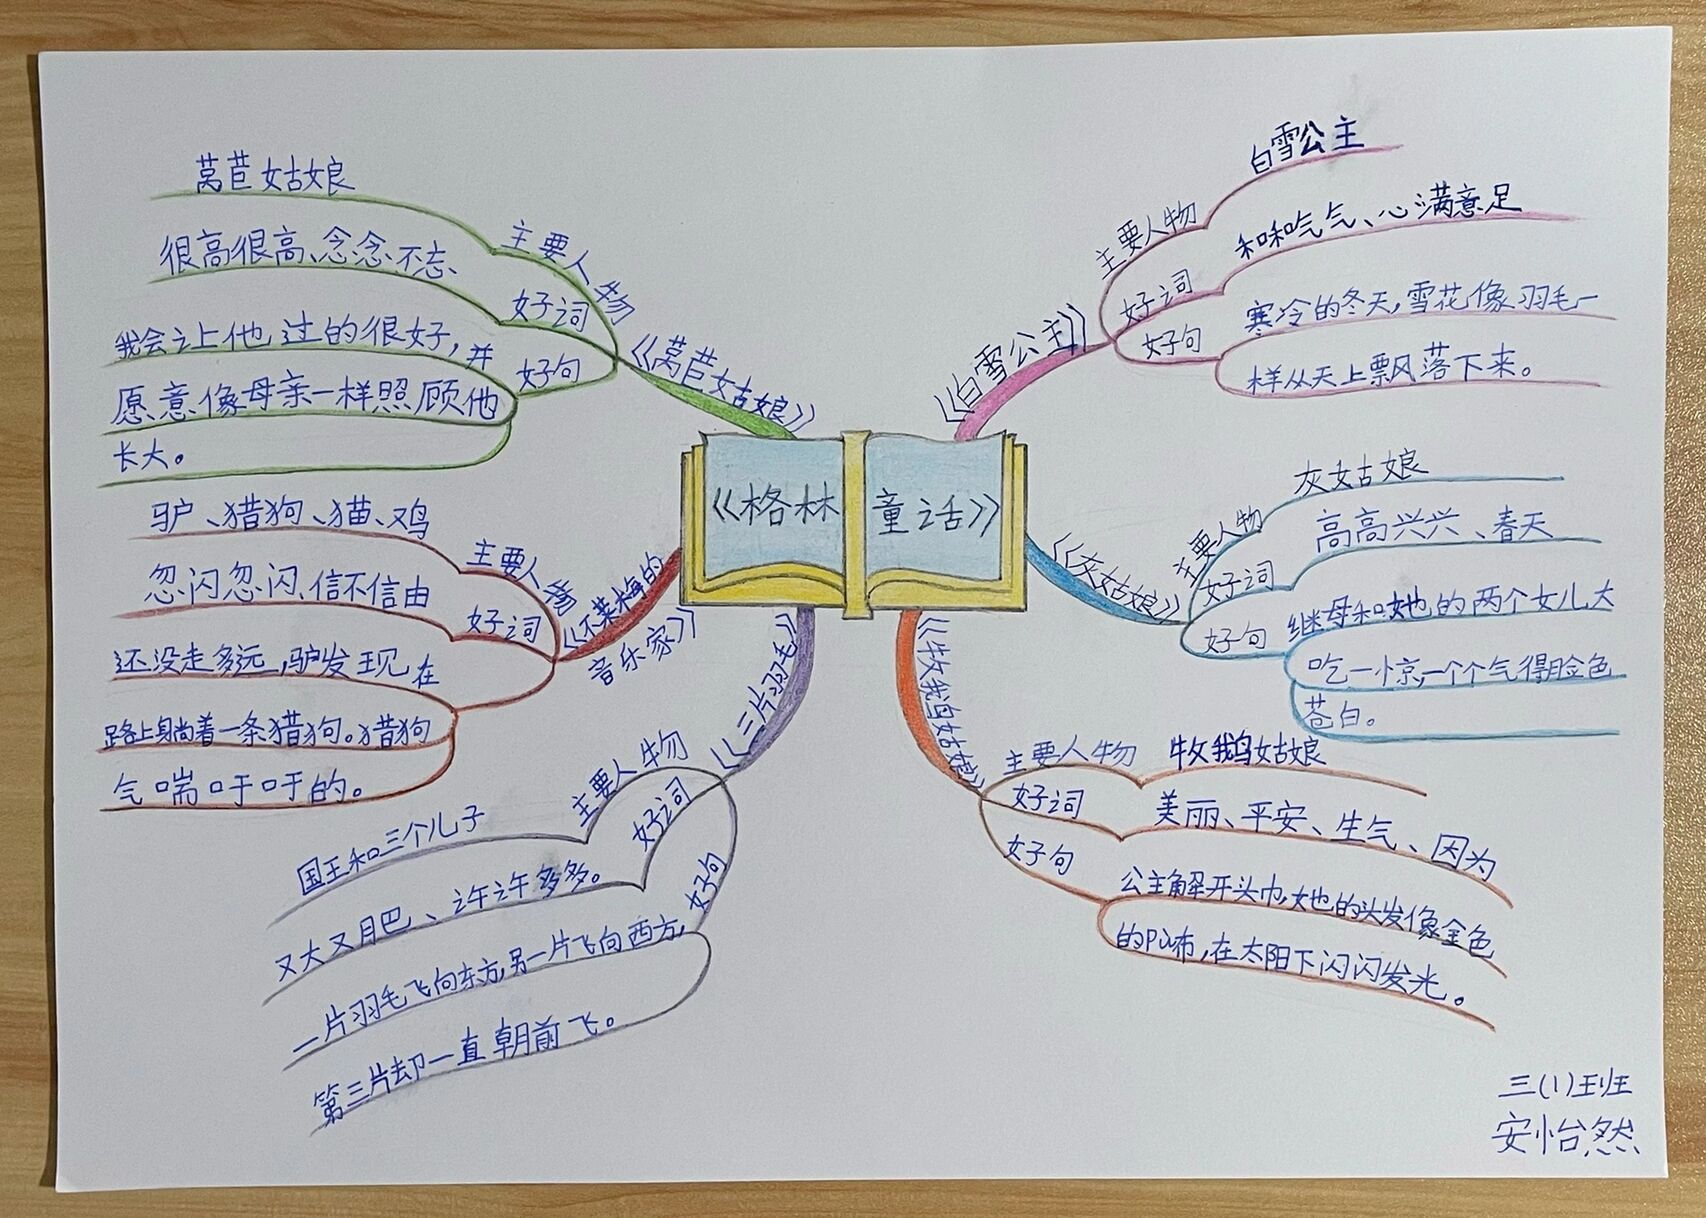 《格林童话》
《莴苣姑娘》
主要人物
莴苣姑娘
好词
很高很高、念念不忘、
好句
我会让上他过的很好，并
愿意像母亲一样照顾他
长大。
《不莱梅的
音乐家》
主要人物
驴、猎狗、猫、鸡
好词
忽闪忽闪、信不信由
好句
还没走多远，驴发现在
路上躺着一条猎狗。猎狗
气喘吁吁的。
《三片羽毛》
主要人物
国王和三个儿子
好词
又大又肥、许许多多。
好句
一片羽毛飞向东方，另一片飞向西方，
第三片却一直朝前飞。
《白雪公主》
主要人物
白雪公主
好词
和和气气、心满意足
好句
寒冷的冬天，雪花像羽毛一
样从天上飘落下来。
《灰姑娘》
主要人物
灰姑娘
好词
高高兴兴、春天
好句
继母和她的两个女儿大
吃一惊，一个个气得脸色
苍白。
《牧鹅姑娘》
主要人物
牧鹅姑娘
好词
美丽、平安、生气、因为
好句
公主解开头巾，她的头发像金色
的瀑布，在太阳下闪闪发光。
三(1)班
安怡然